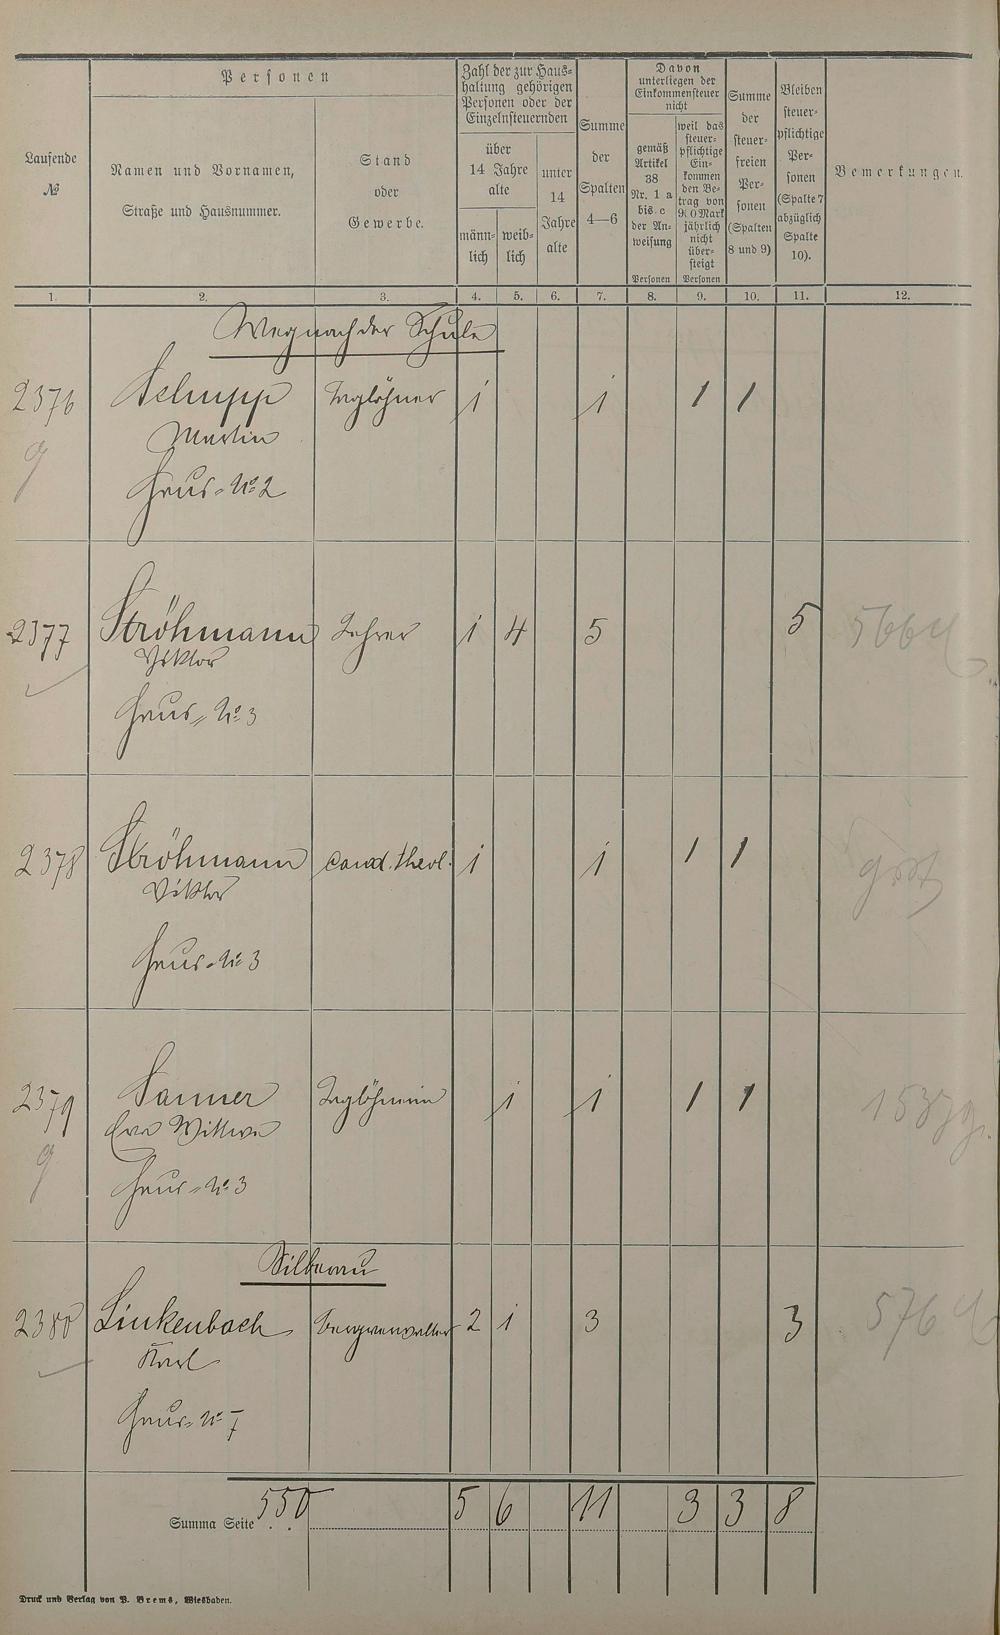 Personen
Laufende
№
Namen und Vornamen,
Straße und Hausnummer.
Stand
oder
Gewerbe.
Zahl der zur Haus-
haltung gehörigen
Personen oder der
Einzelnsteuernden
über
14 Jahre
alte
männ-
lich
weib-
lich
unter
14
Jahre
alte
Summe
der
Spalten
4—6
Davon
unterliegen der
Einkommensteuer
nicht
gemäß
Artikel
38
Nr. 1 a
bis c
der An-
weisung
Personen
weil das
steuer-
pflichtige
Ein-
kommen
den Be-
trag von
900 Mark
jährlich
nicht
über-
steigt
Personen
Summe
der
steuer-
freien
Per-
sonen
(Spalten
8 und 9)
Bleiben
steuer-
pflichtige
Per-
sonen
(Spalte 7
abzüglich
Spalte
10).
Bemerkungen.
1. 2. 3. 4. 5. 6. 7. 8. 9. 10. 11. 12.
Weg nach der Schule
2376 Schupp Taglöhner 1 1 1 1
g Martin
Haus-No 2
2377 Ströhmann Lehrer 1 4 5 5
Viktor
Haus-No 3
2378 Ströhmann cand. theol. 1 1 1 1
Viktor
Haus-No 3
2379 Sanner Taglöhnerin 1 1 1 1
g Eva Wittwe
Haus-No 3
Silberau
2380 Linkenbach Bergverwalter 2 1 3 3 576
Karl
Haus-No 7
Summa Seite 550 5 6 11 3 3 8
Druck und Verlag von P. Brems, Wiesbaden.